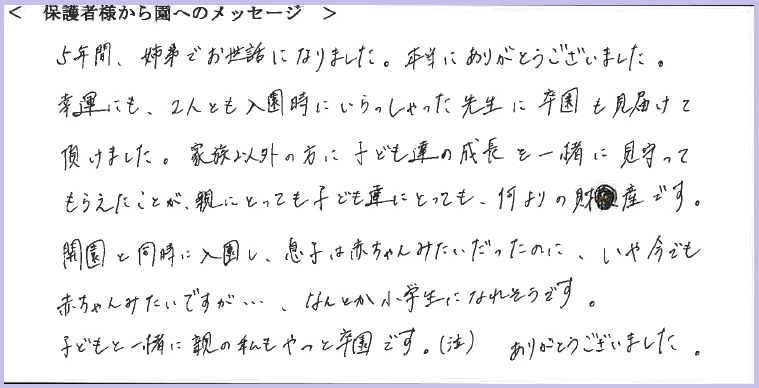 ＜ 保護者様から園へのメッセージ ＞
5年間、姉弟でお世話になりました。本当にありがとうございました。
幸運にも、2人とも入園時にいらっしゃった先生に卒園も見届けて
頂けました。家族以外の方に子ども達の成長を一緒に見守って
もらえたことが、親にとっても子ども達にとっても、何よりの財産です。
開園と同時に入園し、息子は赤ちゃんみたいだったのに、いや今でも
赤ちゃんみたいですが…、なんとか小学生になれそうです。
子どもと一緒に親の私もやっと卒園です。(泣) ありがとうございました。